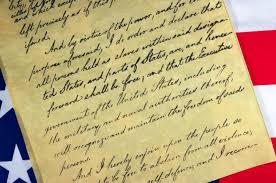 left precisely as if this
issued.
And by virtue of the power, and for the
purpose aforesaid, I do order and declare that
all persons held as slaves within said designa-
ted States and parts of States, are, and hence-
forward shall be free; and that the Executive
government of the United States, including
the military and naval authorities thereof,
will recognize and maintain the freedom of said
persons.
And I hereby enjoin upon the people so
to be free to abstain from all violence,
self-defence; and I recom-